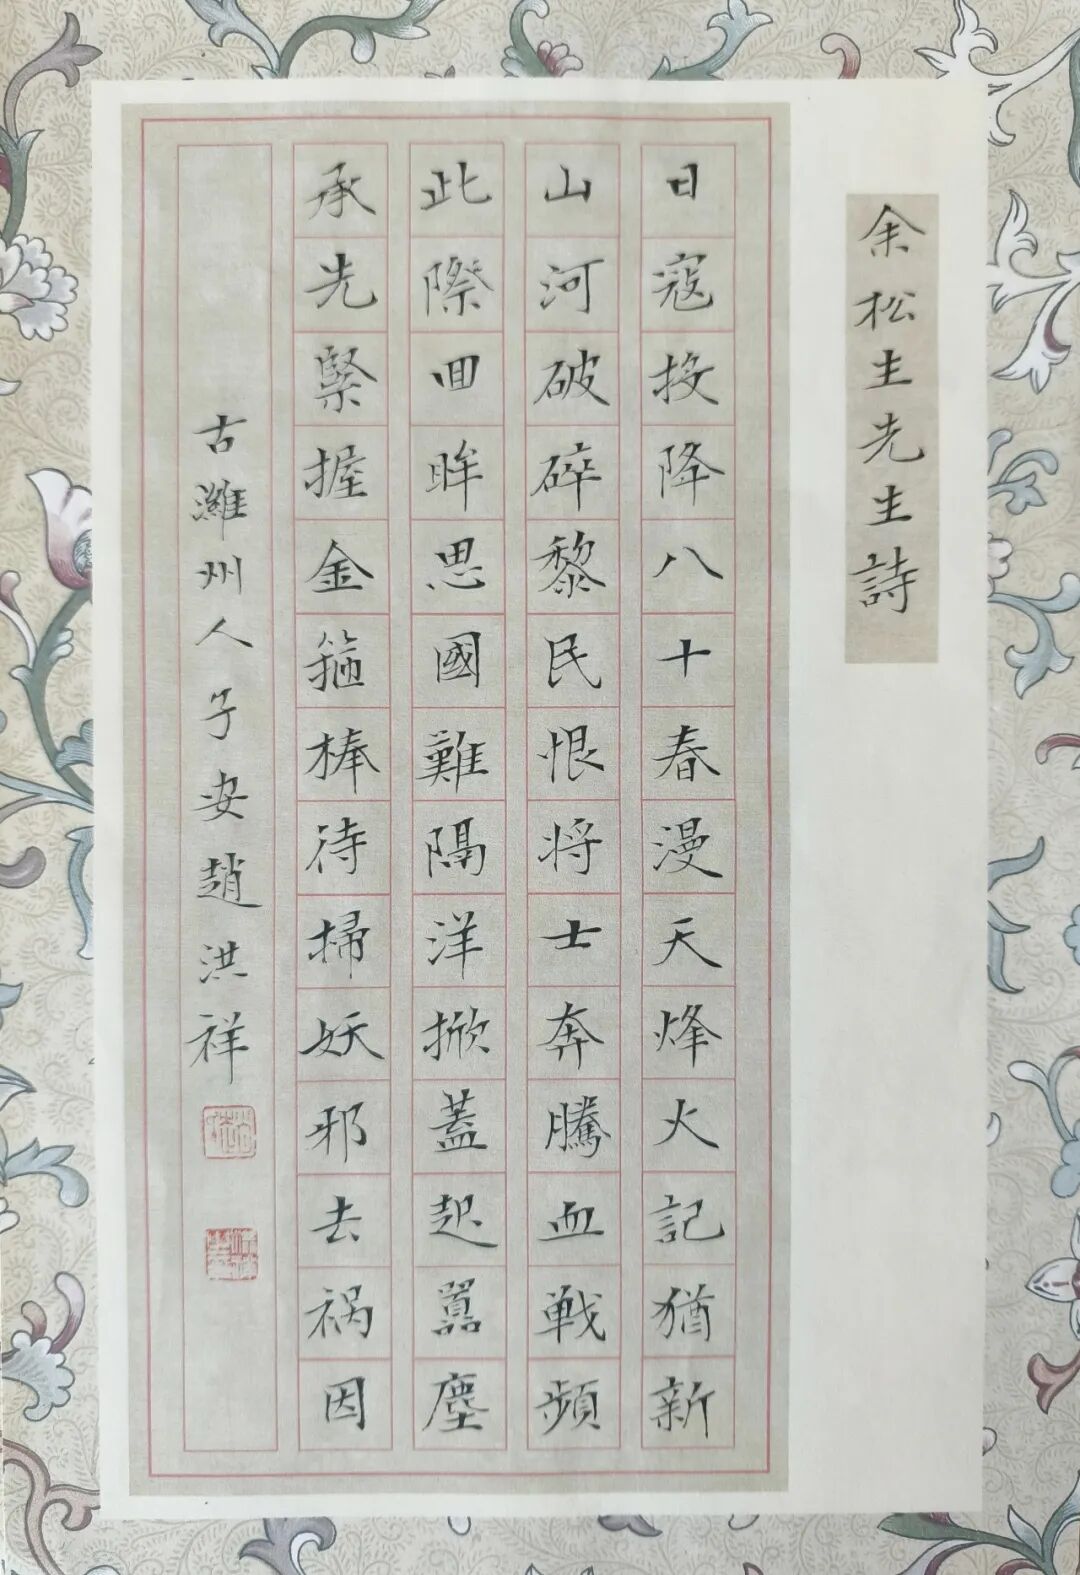 余松生先生詩
日寇投降八十春漫天烽火記猶新
山河破碎黎民恨将士奔騰血戦頻
此際回眸思國難隔洋掀蓋起囂塵
承先緊握金箍棒待掃妖邪去祸因
古濰州人子安趙洪祥